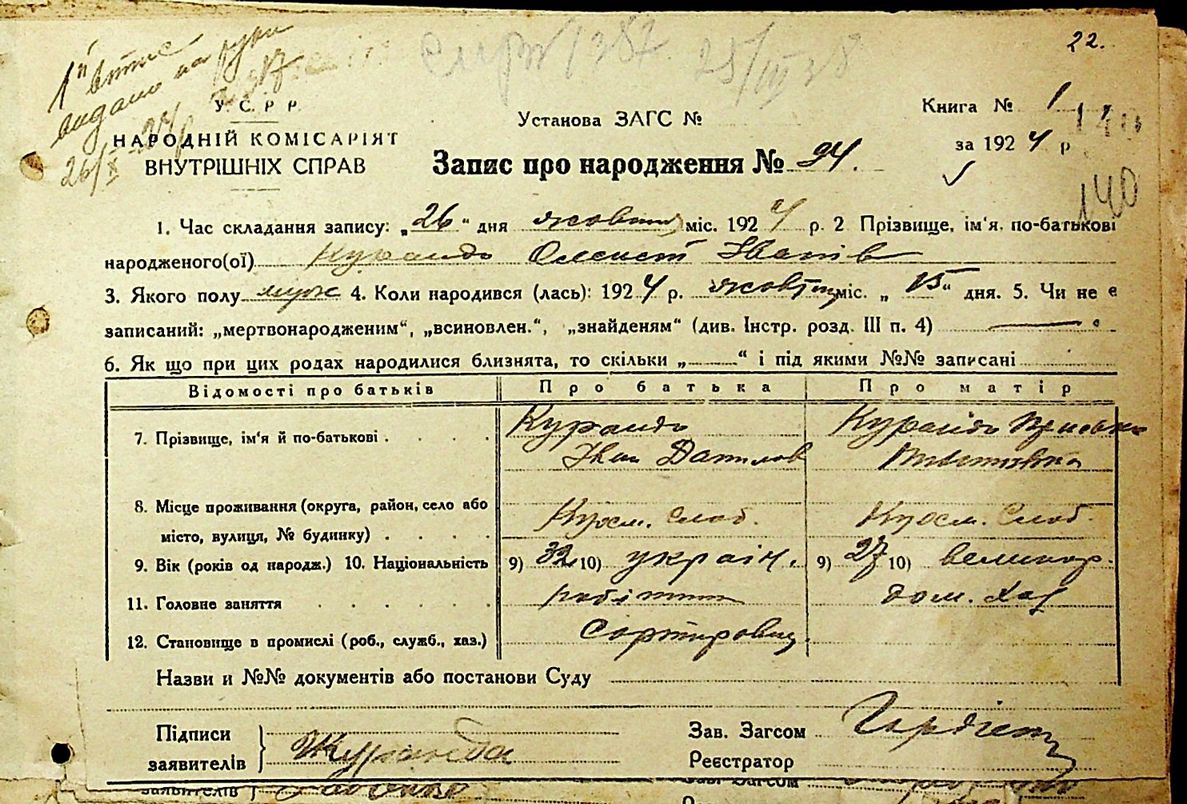 22.
1й витяг
видано на руки
26/X-27р
Книга № 1
У С Р Р
НАРОДНІЙ КОМІСАРІЯТ
ВНУТРІШНІХ СПРАВ
Установа ЗАГС №
за 1924 р
Запис про народження № 94.
140
1. Час складання запису: „26“ дня жовтня міс. 1924 р. 2 Прізвище, ім'я. по-батькові
народженого(ої) Куранда Іванів
3. Якого полу муж 4. Коли народився (лась): 1924 р. жовтня міс. „15“ дня. 5. Чи не є
записаний: „мертвонародженим“, „всиновлен.“, „знайденям“ (див. Інстр. розд. III п. 4)
6. Як що при цих родах народилися близнята, то скільки „ “ і під якими №№ записані
Відомості про батьків Про батька Про матір
7. Прізвище, ім'я й по-батькові Куранда Куранда
Іван Данилов
8. Місце проживання (округа, район, село або
місто, вулиця, № будинку) Слоб. Слоб.
9. Вік (років од народж.) 10. Національність 9) 32 10) україн. 9) 27 10) великор.
11. Головне заняття дом. хаз
12. Становище в промислі (роб., служб., хаз.)
Назви и №№ документів або постанови Суду
Підписи
заявителів
Зав. Загсом
Реєстратор
заявителів
Зав. Загсом